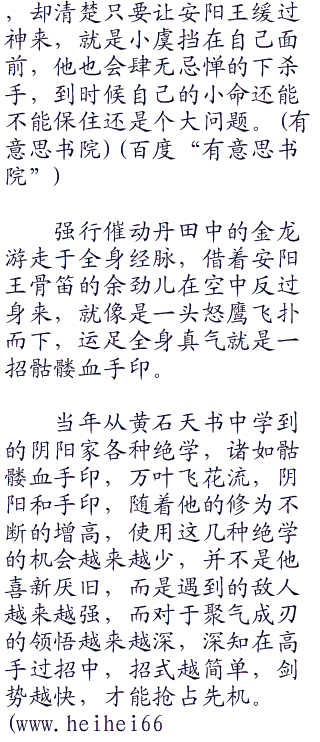 ，却清楚只要让安阳王缓过
神来，就是小虞挡在自己面
前，他也会肆无忌惮的下杀
手，到时候自己的小命还能
不能保住还是个大问题。(有
意思书院)(百度“有意思书
院”)
强行催动丹田中的金龙
游走于全身经脉，借着安阳
王骨笛的余劲儿在空中反过
身来，就像是一头怒鹰飞扑
而下，运足全身真气就是一
招骷髅血手印。
当年从黄石天书中学到
的阴阳家各种绝学，诸如骷
髅血手印，万叶飞花流，阴
阳和手印，随着他的修为不
断的增高，使用这几种绝学
的机会越来越少，并不是他
喜新厌旧，而是遇到的敌人
越来越强，而对于聚气成刃
的领悟越来越深，深知在高
手过招中，招式越简单，剑
势越快，才能抢占先机。
(www.heihei66